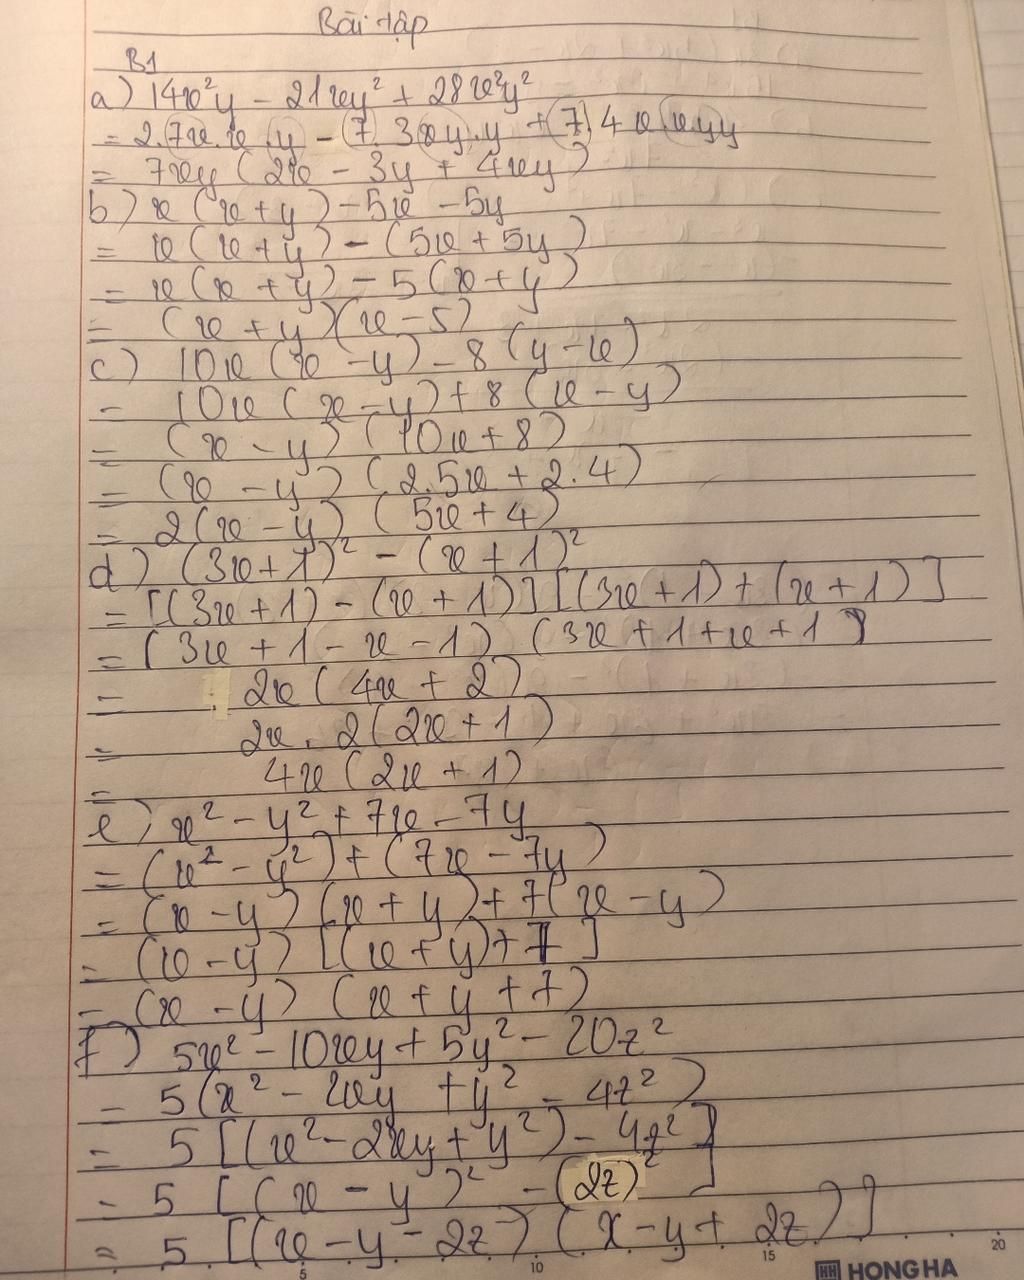 Bài tập
B1
a) 14x²y - 21xy² + 28x²y²
= 2.7x.x.y - 7.3xy.y + 7.4xxyy
= 7xy(2x - 3y + 4xy)
b) x(x+y) - 5x - 5y
= x(x+y) - (5x+5y)
= x(x+y) - 5(x+y)
= (x+y)(x-5)
c) 10x(x-y) - 8(y-x)
= 10x(x-y) + 8(x-y)
= (x-y)(10x+8)
= (x-y)(2.5x+2.4)
= 2(x-y)(5x+4)
d) (3x+1)² - (x+1)²
= [(3x+1) - (x+1)][(3x+1) + (x+1)]
= (3x+1-x-1)(3x+1+x+1)
= 2x(4x+2)
= 2x.2(2x+1)
= 4x(2x+1)
e) x² - y² + 7x - 7y
= (x²-y²) + (7x-7y)
= (x-y)(x+y) + 7(x-y)
= (x-y)[(x+y)+7]
= (x-y)(x+y+7)
f) 5x² - 10xy + 5y² - 20z²
= 5(x² - 2xy + y² - 4z²)
= 5[(x²-2xy+y²) - 4z²]
= 5[(x-y)² - (2z)²]
= 5[(x-y-2z)(x-y+2z)]
5 10 15 20
HH HONG HA